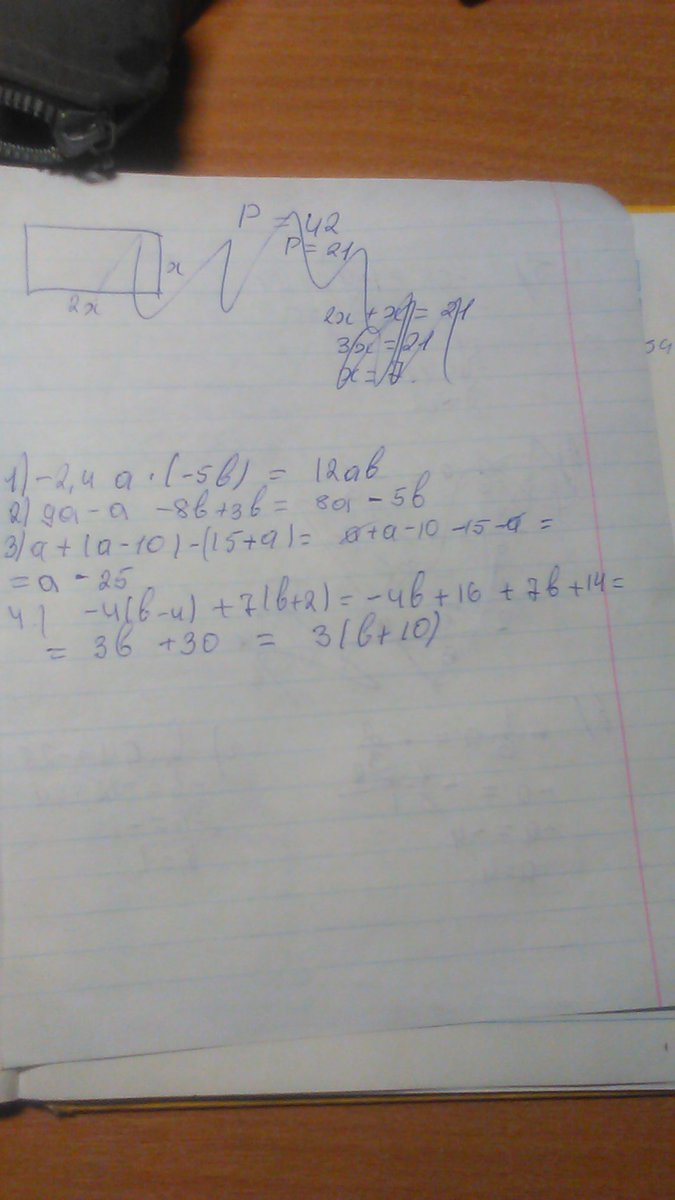 P = 42
P = 21
x
2x
2x + x = 21
3x = 21
x = 7.
1) -2,4 a · (-5b) = 12ab
2) 9a - a - 8b + 3b = 8a - 5b
3) a + (a - 10) - (15 + a) = a + a - 10 - 15 - a =
= a - 25
4) -4(b - 4) + 7(b + 2) = -4b + 16 + 7b + 14 =
= 3b + 30 = 3(b + 10)